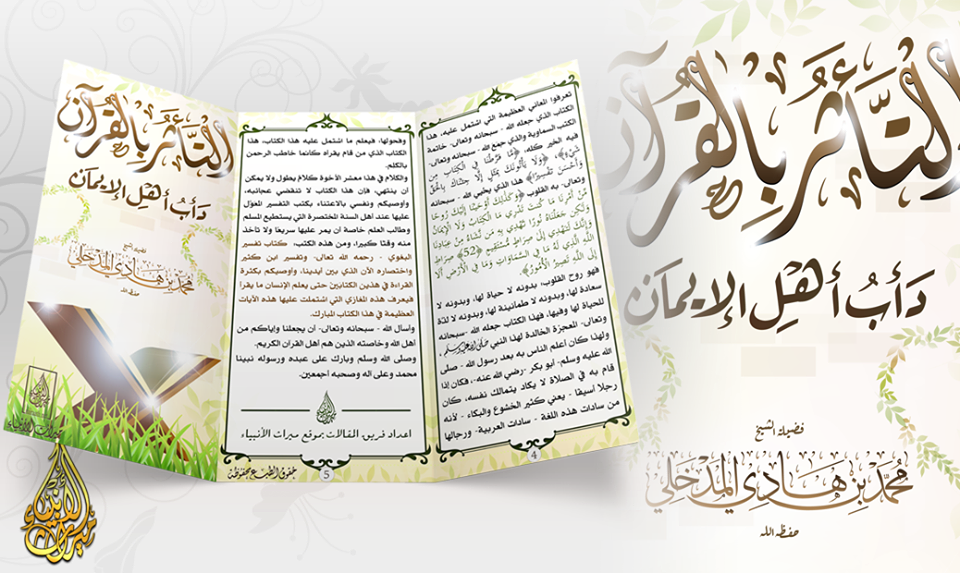 التأثر بالقرآن
دأب أهل الإيمان
فضيلة الشيخ
محمد بن هادي المدخلي
حفظه الله
ميراث الأنبياء
تعرفوا المعاني العظيمة التي اشتمل عليه، هذا
الكتاب الذي جعله الله - سبحانه وتعالى- خاتمة
الكتب السماوية والذي جمع الله - سبحانه وتعالى-
فيه الخير كله، ﴿مَا فَرَّطْنَا فِي الْكِتَابِ مِنْ
شَيْءٍ﴾، ﴿وَلَا يَأْتُونَكَ بِمَثَلٍ إِلَّا جِئْنَاكَ بِالْحَقِّ
وَأَحْسَنَ تَفْسِيرًا﴾ هذا الذي يحيي الله - سبحانه
وتعالى- به القلوب ﴿وَكَذَلِكَ أَوْحَيْنَا إِلَيْكَ رُوحًا
مِنْ أَمْرِنَا مَا كُنْتَ تَدْرِي مَا الْكِتَابُ وَلَا الْإِيمَانُ
وَلَكِنْ جَعَلْنَاهُ نُورًا نَهْدِي بِهِ مَنْ نَشَاءُ مِنْ عِبَادِنَا
وَإِنَّكَ لَتَهْدِي إِلَى صِرَاطٍ مُسْتَقِيمٍ (52) صِرَاطِ
اللَّهِ الَّذِي لَهُ مَا فِي السَّمَاوَاتِ وَمَا فِي الْأَرْضِ أَلَا
إِلَى اللَّهِ تَصِيرُ الْأُمُورُ﴾
فهو روح القلوب، بدونه لا حياة لها، وبدونه لا
سعادة لها، وبدونه لا طمأنينة لها، وبدونه لا لذة
للحياة لها وفيها، فهذا الكتاب جعله الله -سبحانه
وتعالى- المعجزة الخالدة لهذا النبي صلى الله عليه وسلم،
ولهذا كان أعلم الناس به بعد رسول الله - صلى
الله عليه وسلم- أبو بكر -رضي الله عنه-، فكان إذا
قام به في الصلاة لا يكاد يتمالك نفسه، كان
رجلا أسيفا - يعني كثير الخشوع والبكاء - لأنه
من سادات هذه اللغة - سادات العربية- ورجالها
4
وفحولها، فيعلم ما اشتمل عليه هذا الكتاب، هذا
الكتاب الذي من قام يقرأه كأنما خاطب الرحمن
بالكلم.
والكلام في هذا معشر الأخوة كلام يطول ولا يمكن
أن ينتهي، فإن هذا الكتاب لا تنقضي عجائبه،
وأوصيكم ونفسي بالاعتناء بكتب التفسير المعوّل
عليها عند أهل السنة المختصرة التي يستطيع المسلم
وطالب العلم خاصة أن يمر عليها سريعا ولا تأخذ
منه وقتا كبيرا، ومن هذه الكتب، كتاب تفسير
البغوي - رحمه الله تعالى- وتفسير ابن كثير
واختصاره الآن الذي بين أيدينا، وأوصيكم بكثرة
القراءة في هذين الكتابين حتى يعلم الإنسان ما يقرأ
فيعرف هذه المغازي التي اشتملت عليها هذه الآيات
العظيمة في هذا الكتاب المبارك.
وأسأل الله - سبحانه وتعالى- أن يجعلنا وإياكم من
أهل الله وخاصته الذين هم أهل القرآن الكريم.
وصلى الله وسلم وبارك على عبده ورسوله نبينا
محمد وعلى آله وصحبه أجمعين.
اعداد فريق المقالات بموقع ميراث الأنبياء
5
حقوق الطبع محفوظة
التأثر بالقرآن
دأب أهل الإيمان
فضيلة الشيخ
محمد بن هادي المدخلي
حفظه الله
ميراث الأنبياء